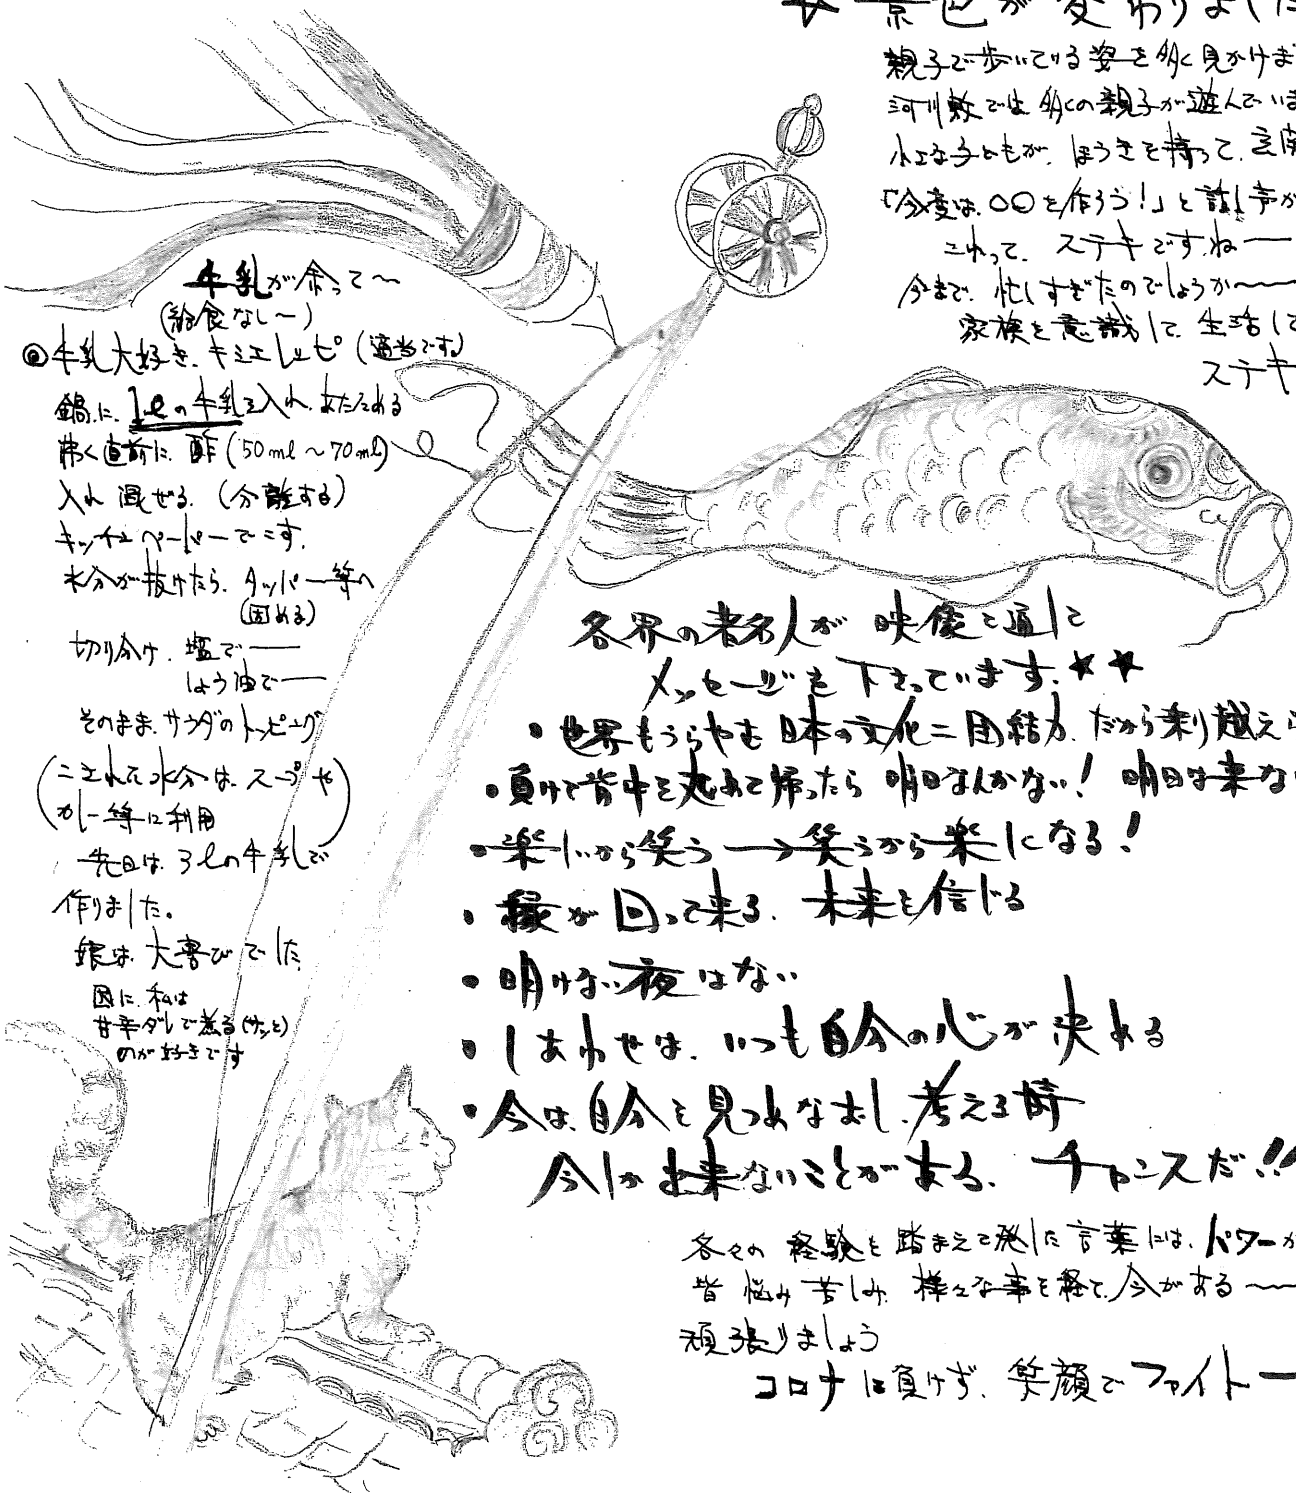 景色が変わりました
親子で歩いている姿を多く見かけま
河川敷では多くの親子が遊んでいま
小さな子どもが、ほうきを持って、玄関
「今度は、○○を作ろう！」と話し声が
これって、ステキですねー
今まで、忙しすぎたのでしょうか〜〜
家族を意識して、生活して
ステキ
牛乳が余って〜
(給食なし〜)
◎牛乳大好き、キミエレシピ(適当です)
鍋に、1ℓの牛乳を入れ、あたためる
沸く直前に、酢(50ml〜70ml)
入れ混ぜる。(分離する)
キッチンペーパーでこす。
水分が抜けたら、タッパー等へ
(固める)
切り分け、塩でー
しょう油でー
そのまま、サラダのトッピング
(こされた水分は、スープや
カレー等に利用)
先日は、3ℓの牛乳で
作りました。
娘は、大喜びでした
因に、私は
甘辛ダレで煮る(サッと)
のが好きです
各界の著名人が映像を通して
メッセージを下さっています。★★
・世界もうらやむ日本の文化＝団結力、だから乗り越えら
・負けて背中を丸めて帰ったら明日なんかない！明日は来な
・楽しいから笑う→笑うから楽しくなる！
・縁が回って来る、未来を信じる
・明けない夜はない
・しあわせは、いつも自分の心が決める
・今は、自分を見つめなおし、考える時
今しか出来ないことがある、チャンスだ!!
各々の経験を踏まえて発した言葉には、パワーが
皆悩み苦しみ、様々な事を経て、今がある〜〜
頑張りましょう
コロナに負けず、笑顔でファイトー